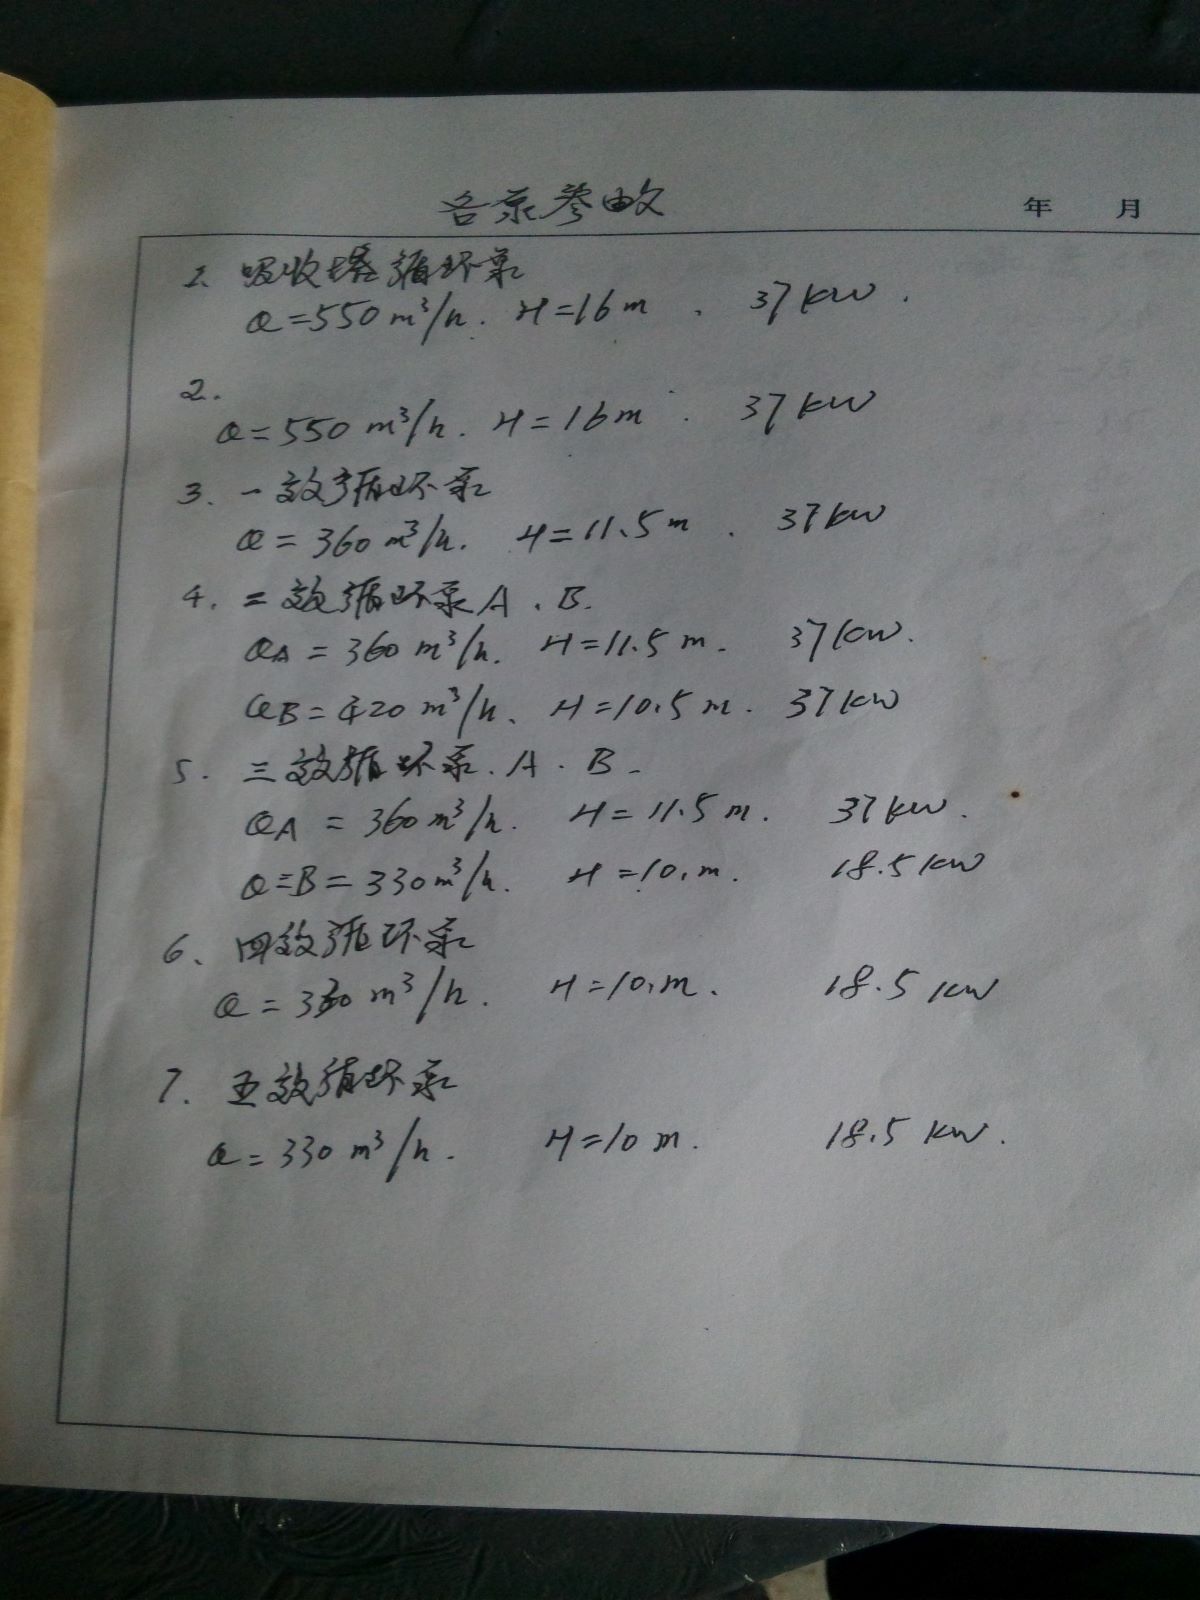 各泵参数
年 月
1. 吸收塔循环泵
Q=550 m³/h. H=16m . 37kw .
2.
Q=550 m³/h. H=16m . 37kw
3. 一效循环泵
Q=360 m³/h. H=11.5m . 37kw
4. 二效循环泵A、B.
QA=360 m³/h. H=11.5m. 37kw.
QB=420 m³/h、 H=10.5m. 37kw
5. 三效循环泵.A.B.
QA=360 m³/h. H=11.5m. 37kw.
Q三B=330 m³/h. H=10.m. 18.5kw
6、四效循环泵
Q=330 m³/h. H=10.m. 18.5kw
7. 五效循环泵
Q=330 m³/h. H=10m. 18.5kw.